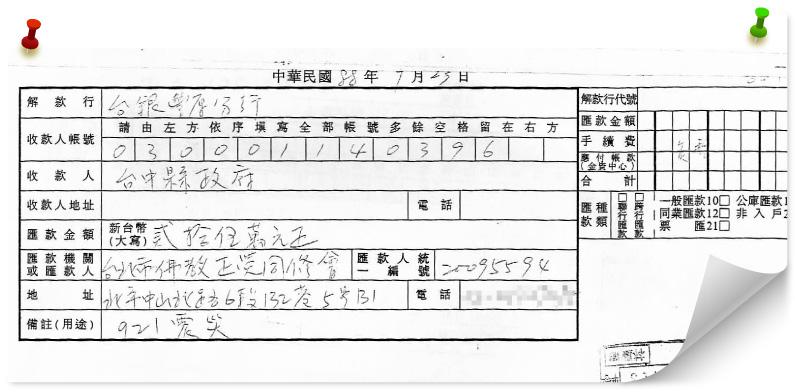 中華民國 88 年 9 月 29 日
解款行 台銀豐原分行
請由左方依序填寫全部帳號多餘空格留在右方
收款人帳號 030001140396
收款人 台中縣政府
收款人地址 電話
匯款金額 新台幣(大寫) 貳拾伍萬元正
匯款機關或匯款人 台北市佛教正覺同修會 匯款人統一編號 20095594
地址 北市中山北路6段132巷5号B1 電話
備註(用途) 921震災
解款行代號
匯款金額
手續費
應付帳款(金資中心)
合計
匯款種類 □聯行匯款 □跨行匯款
一般匯款10□ 公庫匯款1
同業匯款12□ 非入戶2
票匯21□